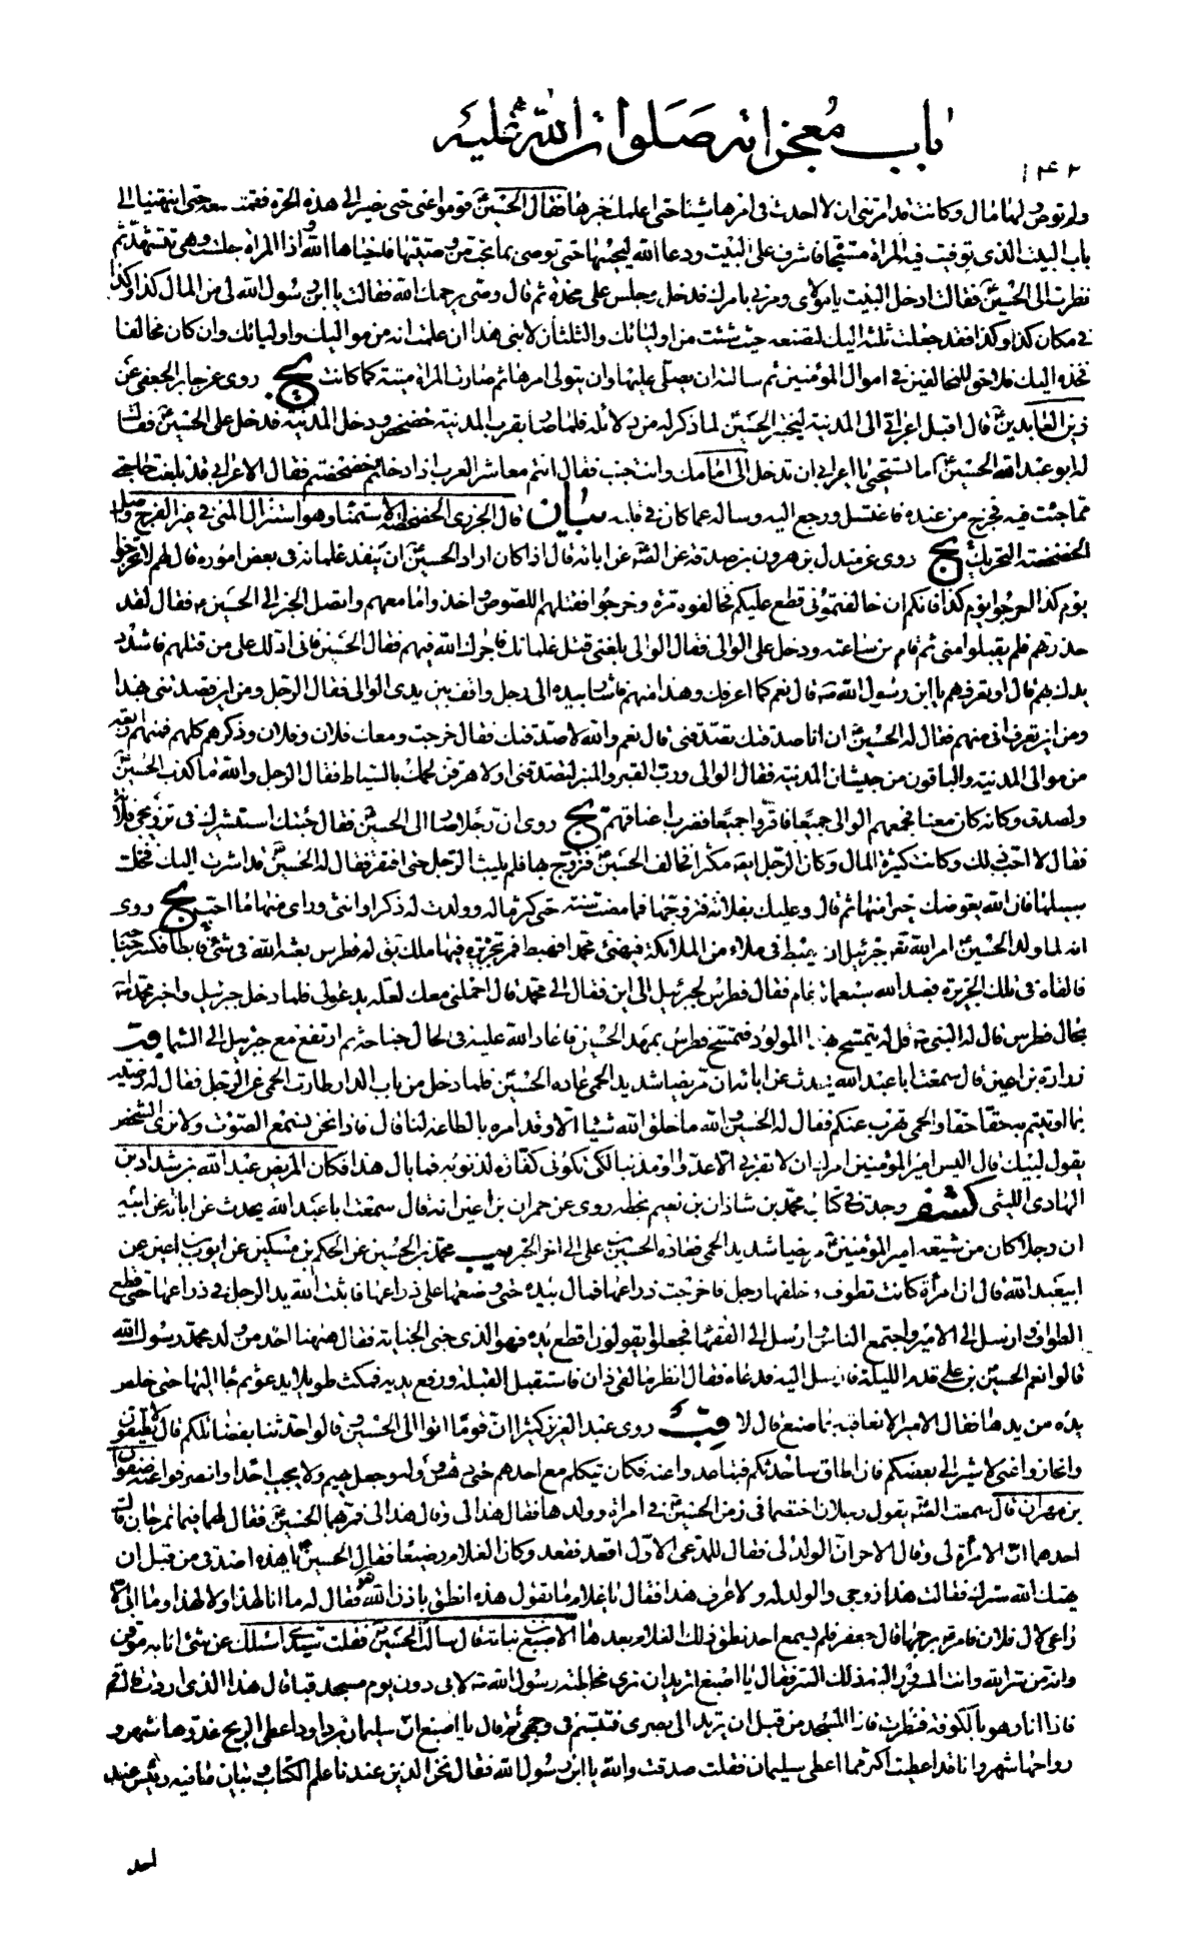 باب معجزاته صلوات الله عليه
١٤٢
ولم توص ولها مال وكانت قد امرتني ان لا احدث في امرها شيئا حتى اعلمك خبرها فقال الحسين قوموا عني حتى نصير الى هذه الحرة فقمنا معه حتى انتهينا الى
باب البيت الذي توفيت فيه المرأة مسجاة فاشرف على البيت ودعا الله ليحييها حتى توصي بما تحب من وصيتها فاحياها الله واذا المرأة جلست وهي تتشهد ثم
نظرت الى الحسين فقالت ادخل البيت يا مولاي ومرني بامرك فدخل وجلس على مخدة ثم قال وصي يرحمك الله فقالت يا ابن رسول الله لي من المال كذا وكذا
في مكان كذا وكذا فقد جعلت ثلثه اليك لتضعه حيث شئت من اوليائك والثلثان لابني هذا ان علمت انه من مواليك واوليائك وان كان مخالفا
فخذه اليك فلا حق للمخالفين في اموال المؤمنين ثم سالته ان يصلي عليها وان يتولى امرها ثم صارت المرأة ميتة كما كانت يج روى عن جابر الجعفي عن
زين العابدين قال اقبل اعرابي الى المدينة ليختبر الحسين لما ذكر له من دلائله فلما صار بقرب المدينة خضخض ودخل المدينة فدخل على الحسين فقال
له ابو عبد الله الحسين اما تستحيي يا اعرابي ان تدخل الى امامك وانت جنب فقال انتم معاشر العرب اذا دخلتم خضخضتم فقال الاعرابي قد بلغت حاجتي
مما جئت فيه فخرج من عنده فاغتسل ورجع اليه وساله عما كان في قلبه بيان قال الجزري الخضخضة الاستمناء وهو استنزال المني في غير الفرج واصل
الخضخضة التحريك يج روى عن مندل بن هرون بن صدقة عن الصه عن ابائه قال اذا كان اراد الحسين ان ينفذ غلمانه في بعض اموره قال لهم لا تخرجوا
يوم كذا اخرجوا يوم كذا فانكم ان خالفتموني قطع عليكم فخالفوه مرة وخرجوا فقتلهم اللصوص واخذوا ما معهم واتصل الخبر الى الحسين فقال لقد
حذرتهم فلم يقبلوا مني ثم قام من ساعته ودخل على الوالي فقال الوالي بلغني قتل غلمانك فآجرك الله فيهم فقال الحسين فاني ادلك على من قتلهم فاشدد
يدك بهم قال او تعرفهم يا ابن رسول الله قال نعم كما اعرفك وهذا منهم فاشار بيده الى رجل واقف بين يدي الوالي فقال الرجل ومن اين قصدتني بهذا
ومن اين تعرف اني منهم فقال له الحسين ان انا صدقتك تصدقني قال نعم والله لاصدقنك فقال خرجت ومعك فلان وفلان وذكرهم كلهم فمنهم اربعة
من موالي المدينة والباقون من حبشان المدينة فقال الوالي ورب القبر والمنبر لتصدقني او لاهرقن لحمك بالسياط فقال الرجل والله ما كذب الحسين
ولصدق وكانه كان معنا فجمعهم الوالي جميعا فاقروا جميعا فضرب اعناقهم يج روى ان رجلا صار الى الحسين فقال جئتك استشيرك في تزويجي فلانة
فقال لا احب ذلك وكانت كثيرة المال وكان الرجل ايضا مكثرا فخالف الحسين فتزوج بها فلم يلبث الرجل حتى افتقر فقال له الحسين قد اشرت اليك فخل
سبيلها فان الله يعوضك خيرا منها ثم قال وعليك بفلانة فتزوجها فما مضت سنة حتى كثر ماله وولدت له ذكرا وانثى وراى منها ما احب يج روى
انه لما ولد الحسين امر الله تعه جبرئيل ان يهبط في ملاء من الملائكة فيهنئ محمدا فهبط فمر بجزيرة فيها ملك يق له فطرس بعثه الله في شئ فابطا فكسر جناحه
فالقاه في تلك الجزيرة فعبد الله سبعمائة عام فقال فطرس لجبرئيل الى اين فقال الى محمد قال احملني معك لعله يدعو لي فلما دخل جبرئيل واخبر محمدا
بحال فطرس قال له النبي قل له يتمسح بهذا المولود فتمسح فطرس بمهد الحسين فاعاد الله عليه في الحال جناحه ثم ارتفع مع جبرئيل الى السماء قب
زرارة بن اعين قال سمعت ابا عبد الله يحدث عن ابائه ان مريضا شديد الحمى عاده الحسين فلما دخل من باب الدار طارت الحمى عن الرجل فقال له رضيت
بما اوتيتم به حقا حقا والحمى تهرب عنكم فقال له الحسين والله ما خلق الله شيئا الا وقد امره بالطاعة لنا قال فاذا نحن نسمع الصوت ولا نرى الشخص
يقول لبيك قال اليس امير المؤمنين امرك ان لا تقربي الا عدوا او مذنبا لكي تكوني كفارة لذنوبه فما بال هذا فكان المريض عبد الله بن شداد بن
الهادي الليثي كشف وجدت في كتاب محمد بن شاذان بن نعيم بخطه روى عن حمران بن اعين انه قال سمعت ابا عبد الله يحدث عن ابائه عن ابيه
ان رجلا كان من شيعة امير المؤمنين مريضا شديد الحمى فعاده الحسين بن علي الى اخر الخبر يب محمد بن الحسين عن الحكم بن مسكين عن ايوب بن اعين عن
ابي عبد الله قال ان امرأة كانت تطوف وخلفها رجل فاخرجت ذراعها فمال بيده حتى وضعها على ذراعها فاثبت الله يد الرجل في ذراعها حتى قطع
الطواف وارسل الى الامير واجتمع الناس وارسل الى الفقهاء فجعلوا يقولون اقطع يده فهو الذي جنى الجناية فقال ههنا احد من ولد محمد رسول الله
قالوا نعم الحسين بن علي قدم الليلة فارسل اليه فدعاه فقال انظر ما لقي ذان فاستقبل القبلة ورفع يديه فمكث طويلا يدعو ثم جاء اليها حتى خلص
يده من يدها فقال الامير الا نعاقبه بما صنع قال لا قب روى عبد العزيز بن كثير ان قوما اتوا الى الحسين وقالوا حدثنا بفضائلكم قال لا تطيقون
وانحازوا عني لاشير الى بعضكم فان اطاق ساحدثكم فتباعدوا عنه فكان يتكلم مع احدهم حتى دهش ووله وجعل يهيم ولا يجيب احدا وانصرفوا عنه صفوان
بن مهران قال سمعت الصه يقول رجلان اختصما في زمن الحسين في امرأة وولدها فقال هذا لي وقال هذا لي فمر بهما الحسين فقال لهما فيما تمرجان قال
احدهما ان الامرأة لي وقال الاخر ان الولد لي فقال للمدعي الاول اقعد فقعد وكان الغلام رضيعا فقال الحسين يا هذه اصدقي من قبل ان
يهتك الله سترك فقالت هذا زوجي والولد له ولا اعرف هذا فقال يا غلام ما تقول هذه انطق باذن الله فقال له ما انا لهذا ولا لهذا وما ابي الا
راعي لال فلان فامر برجمها قال جعفر فلم يسمع احد نطق ذلك الغلام بعدها الاصبغ بن نباتة قال سالت الحسين فقلت سيدي اسئلك عن شئ انا به موقن
وانه من سر الله وانت المسرور اليه ذلك السر فقال يا اصبغ اتريد ان ترى مخاطبة رسول الله لابي دون يوم مسجد قبا قال هذا الذي اردت قال قم
فاذا انا وهو بالكوفة فنظرت فاذا المسجد من قبل ان يرتد الى بصري فتبسم في وجهي ثم قال يا اصبغ ان سليمان بن داود اعطي الريح غدوها شهر و
رواحها شهر وانا قد اعطيت اكثر مما اعطي سليمان فقلت صدقت والله يا ابن رسول الله فقال نحن الذين عندنا علم الكتاب وبيان ما فيه وليس عند
احد